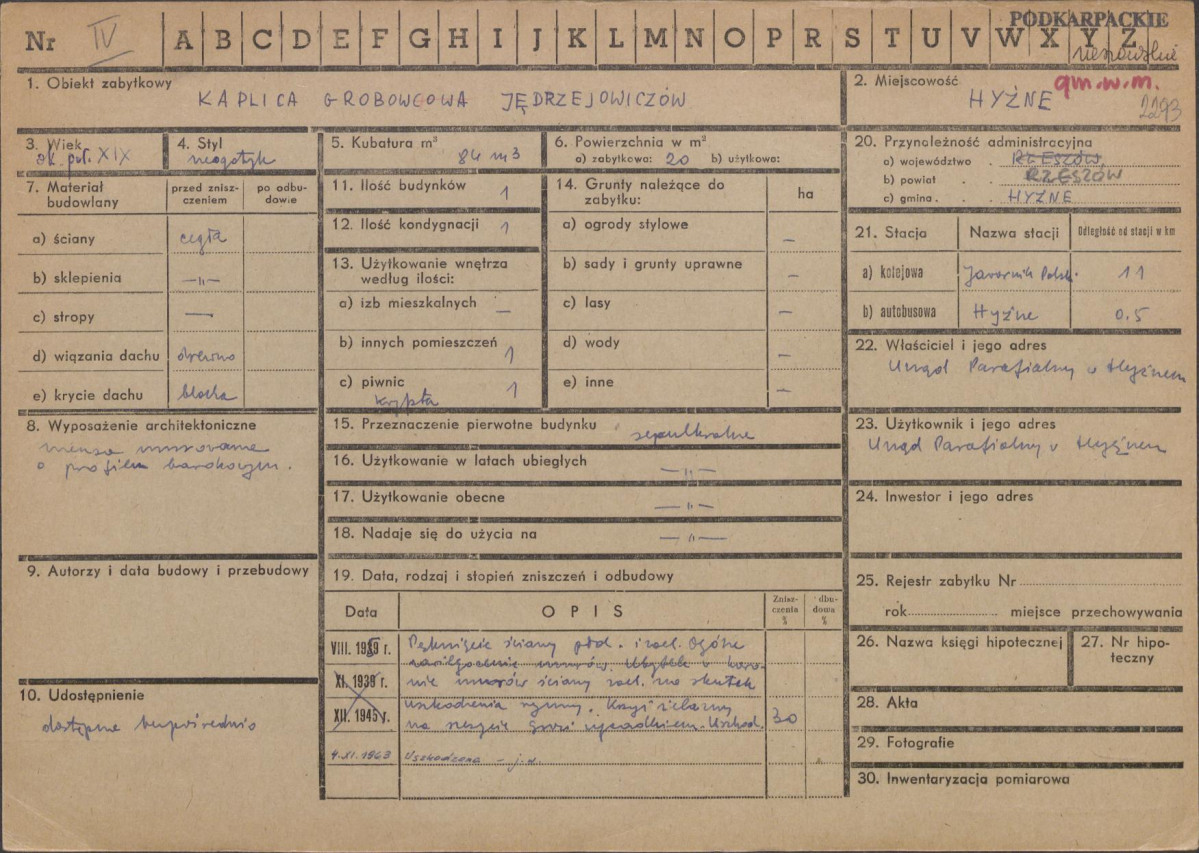 PODKARPACKIE
Nr IV A B C D E F G H I J K L M N O P R S T U V W X Y Z
1. Obiekt zabytkowy
KAPLICA GROBOWCOWA JĘDRZEJOWICZÓW
2. Miejscowość gm.w.m.
HYŻNE 2293
3. Wiek
ok. poł. XIX
4. Styl
neogotyk
5. Kubatura m³
84 m3
6. Powierzchnia w m²
a) zabytkowa: 20 b) użytkowa:
7. Materiał budowlany
przed zniszczeniem
po odbudowie
a) ściany cegła
b) sklepienia —„—
c) stropy —
d) wiązania dachu drewno
e) krycie dachu blacha
8. Wyposażenie architektoniczne
mensa murowana
o profilu barokowym.
9. Autorzy i data budowy i przebudowy
10. Udostępnienie
dostępne bezpośrednio
11. Ilość budynków 1
12. Ilość kondygnacji 1
13. Użytkowanie wnętrza
według ilości:
a) izb mieszkalnych —
b) innych pomieszczeń 1
c) piwnic 1
krypta
14. Grunty należące do
zabytku:
ha
a) ogrody stylowe —
b) sady i grunty uprawne —
c) lasy —
d) wody —
e) inne —
15. Przeznaczenie pierwotne budynku sepulkralne
16. Użytkowanie w latach ubiegłych —„—
17. Użytkowanie obecne —„—
18. Nadaje się do użycia na —„—
19. Data, rodzaj i stopień zniszczeń i odbudowy
Data
OPIS
Zniszczenia %
dbudowa %
VIII. 1959 r. Pęknięcie ściany płd. i zach. Ogólne
zawilgocenie murów. Ubytki w koro-
XI. 1939 r. nie murów ściany zach. na skutek
uszkodzenia rynny. Krzyż żelazny
XII. 1945 r. na szczycie grozi upadkiem. Uszkod. 30
4.XI.1963 Uszkodzona - j.w.
20. Przynależność administracyjna
a) województwo . RZESZÓW
b) powiat . . RZESZÓW
c) gmina . . HYŻNE
21. Stacja
Nazwa stacji
Odległość od stacji w km
a) kolejowa Jawornik Polsk. 11
b) autobusowa Hyżne 0.5
22. Właściciel i jego adres
Urząd Parafialny w Hyżnem
23. Użytkownik i jego adres
Urząd Parafialny w Hyżnem
24. Inwestor i jego adres
25. Rejestr zabytku Nr
rok miejsce przechowywania
26. Nazwa księgi hipotecznej
27. Nr hipoteczny
28. Akta
29. Fotografie
30. Inwentaryzacja pomiarowa